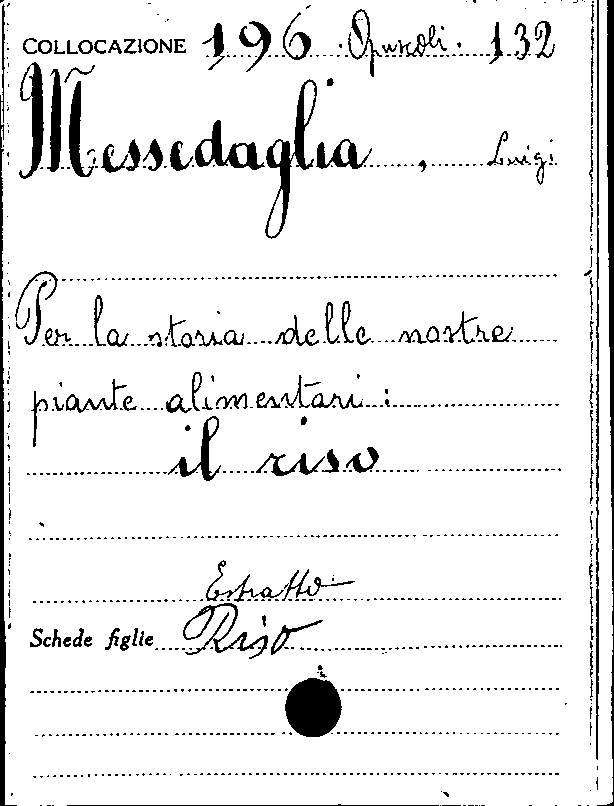 COLLOCAZIONE 196 . Opuscoli . 132
Messedaglia , Luigi
Per la storia delle nostre
piante alimentari :
il riso
Estratto
Schede figlie Riso